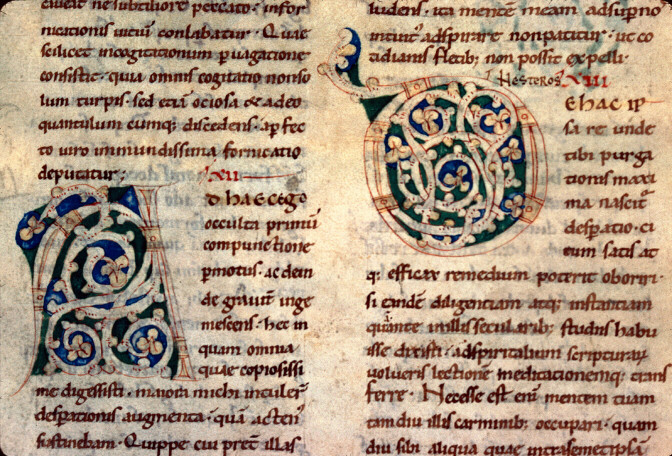 ciuat ne subtiliore peccato infor
nicationis uiciū conlabatur. Quae
scilicet incogitationum peruagatione
consistit. quia omnis cogitatio nonso
lum turpis. sed etiā ociosa & adeo
quantulum cumq; discedens. apfec
to uiro inmundissima fornicatio
deputatur; XII
D haec ego
occulta primū
compunctione
pmotus. ac dein
de grauit inge
mescens. hec in
quam omnia
quae copiosissi
me digessisti. maiorē michi inculert
desperationis augmenta. quā actenꝰ
sustinebam. Quippe cui preter illas
ludens. ita mentē meam adsuperno
intuitꝰ adspirare nonpatitur. ut co
tidianis fletib; non possit expelli.
NESTEROS XIII
E hac ip
sa re unde
tibi purga
tionis maxi
ma nascit
desperatio. ci
tum satis at
q; efficax remedium poterit oboriri.
si eandē diligentiam atq; instantiam
quā te inillis secularib; studiis habu
isse dixisti. adspiritalium scripturarū
volueris lectionē meditationemq; trans
ferre. Necesse est enī mentem tuam
tam diu illis carminib; occupari. quam
diu sibi aliqua quae intrasemetipsā